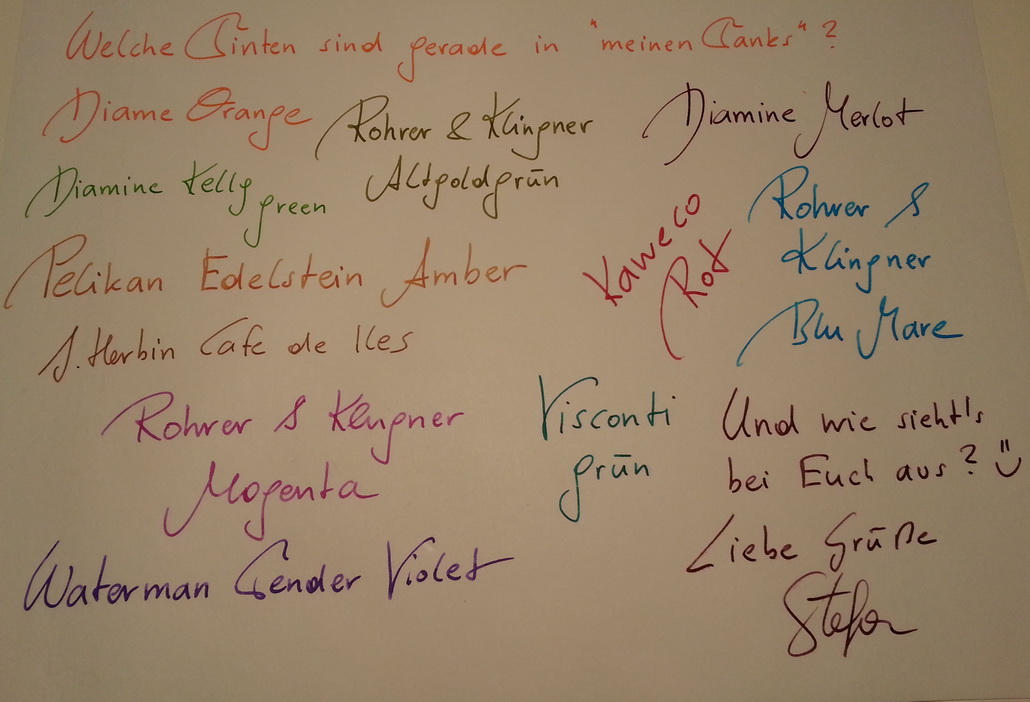 Welche Tinten sind gerade in "meinen Tanks"?
Diame Orange
Rohrer & Klingner
Altgoldgrün
Diamine Merlot
Diamine Kelly
green
Pelikan Edelstein Amber
Kaweco
Rot
Rohrer &
Klingner
Blu Mare
J. Herbin Cafe de Iles
Rohrer & Klingner
Magenta
Visconti
grün
Waterman Tender Violet
Und wie sieht's
bei Euch aus?
Liebe Grüße
Stefan